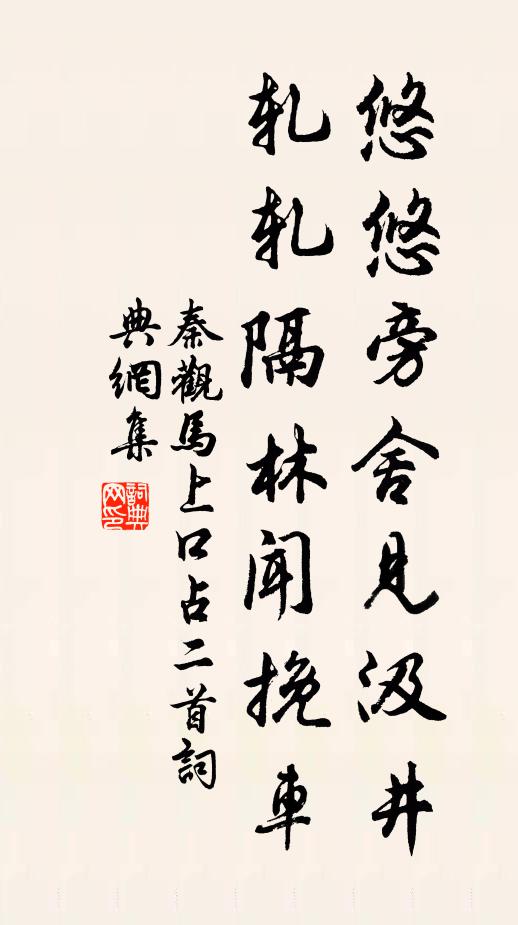 悠悠旁舍見汲井
軋軋隔林聞挽車
秦觀馬上口占二首詞
典網集
詞典
网印